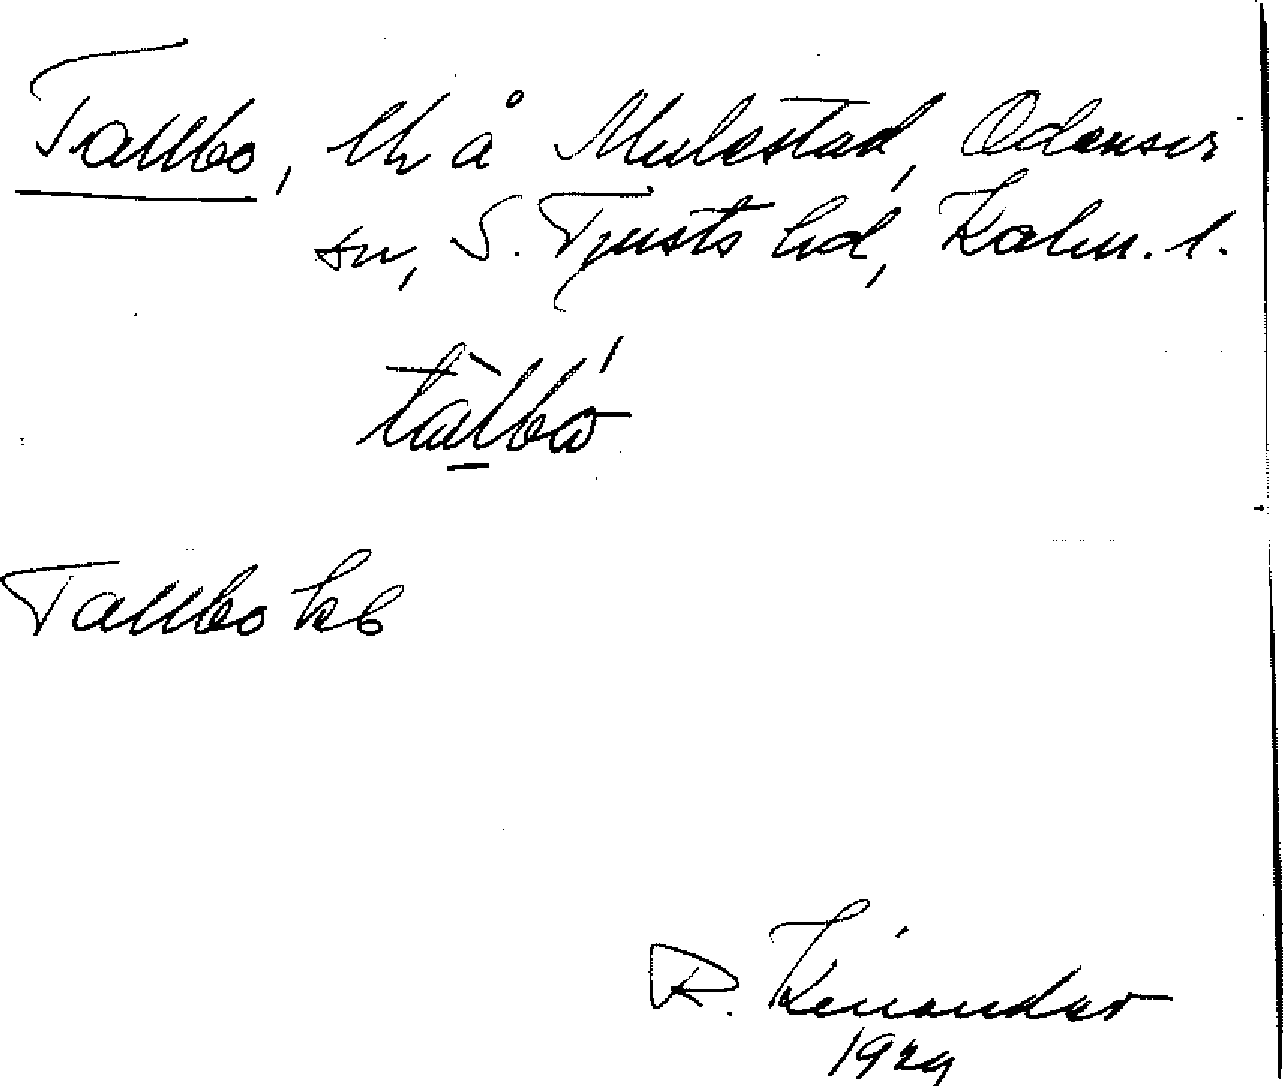 Tallbo, lh å Mulestad, Odensvi
sn, S. Tjusts hd, Kalm. l.
tàlbó
Tallbo kb
R. Kinander
1929